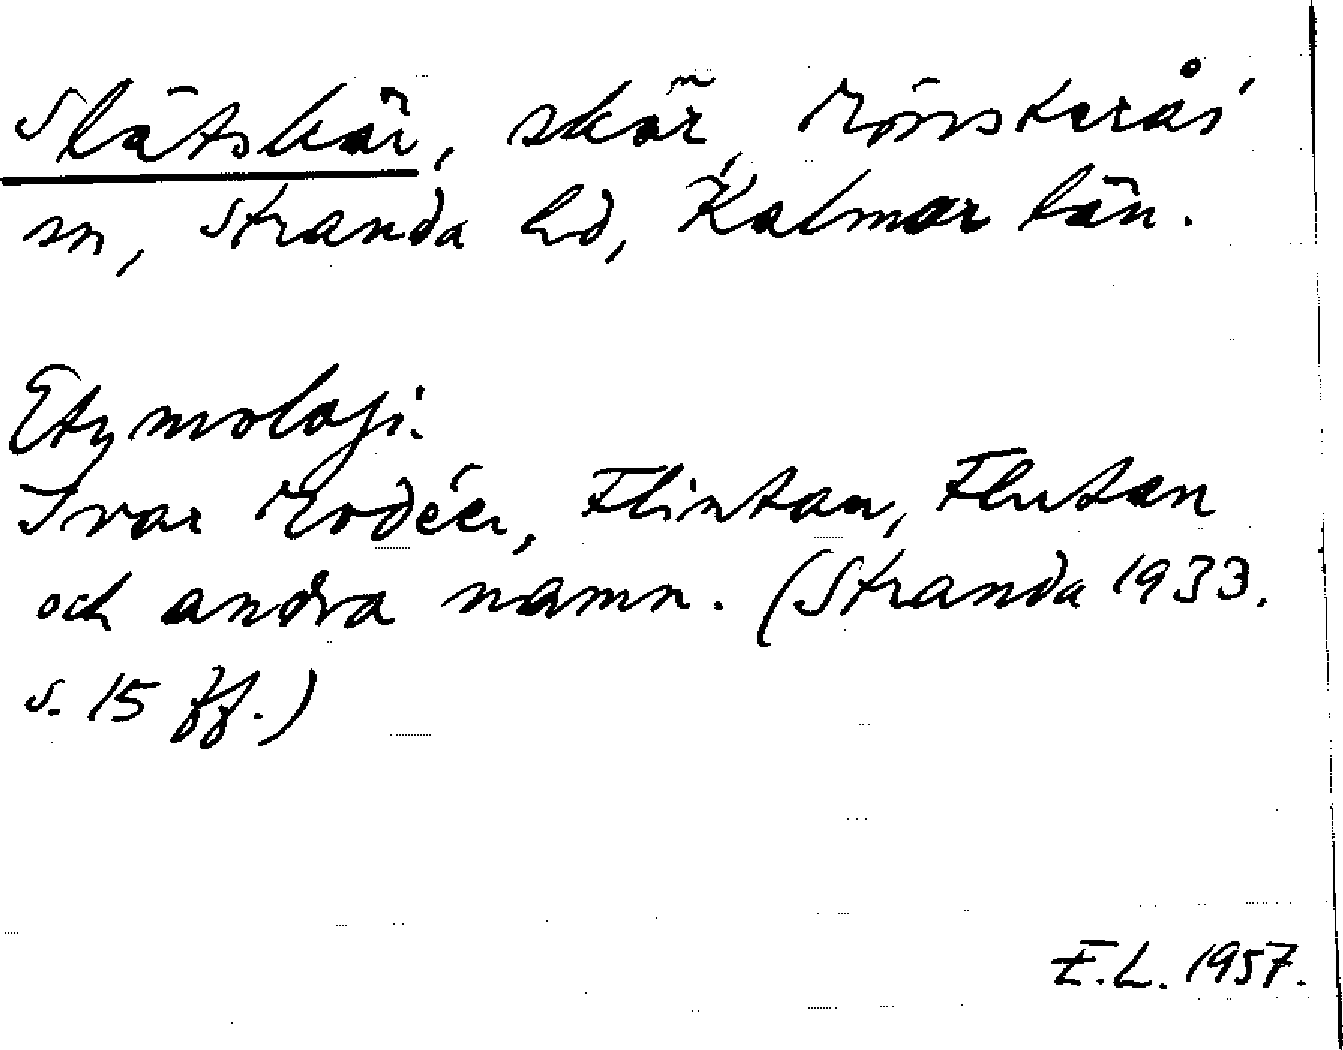 Slätskär, skär, Mönsterås
sn, Stranda hd, Kalmar län.
Etymologi.
Ivar Modéer, Flintan, Flutan
och andra namn. (Stranda 1933.
s. 15 ff.)
E.L. 1957.